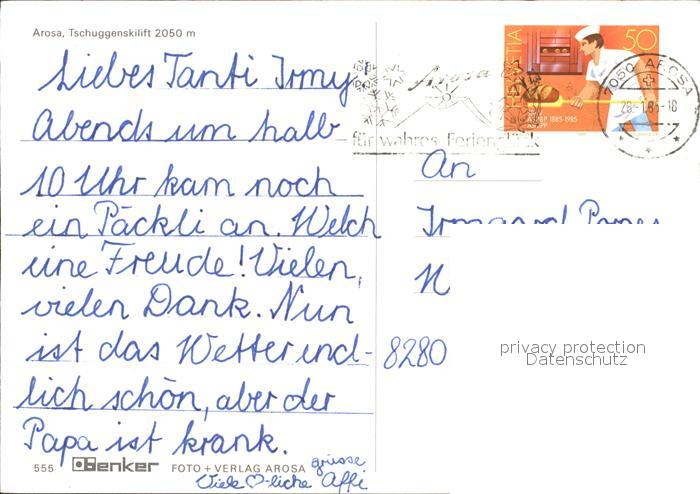 Arosa, Tschuggenskilift 2050 m
Liebes Tanti Irmy
Abends um halb
10 Uhr kam noch
ein Päckli an. Welch
eine Freude! Vielen,
vielen Dank. Nun
ist das Wetter end-
lich schön, aber der
Papa ist krank.
grüsse
Viele ♡-liche Affi
555 Denker FOTO + VERLAG AROSA
Arosa
für wahres Ferienglück
HELVETIA 50
1885-1985
7050 AROSA
An
Irmgard
N
8280
privacy protection
Datenschutz